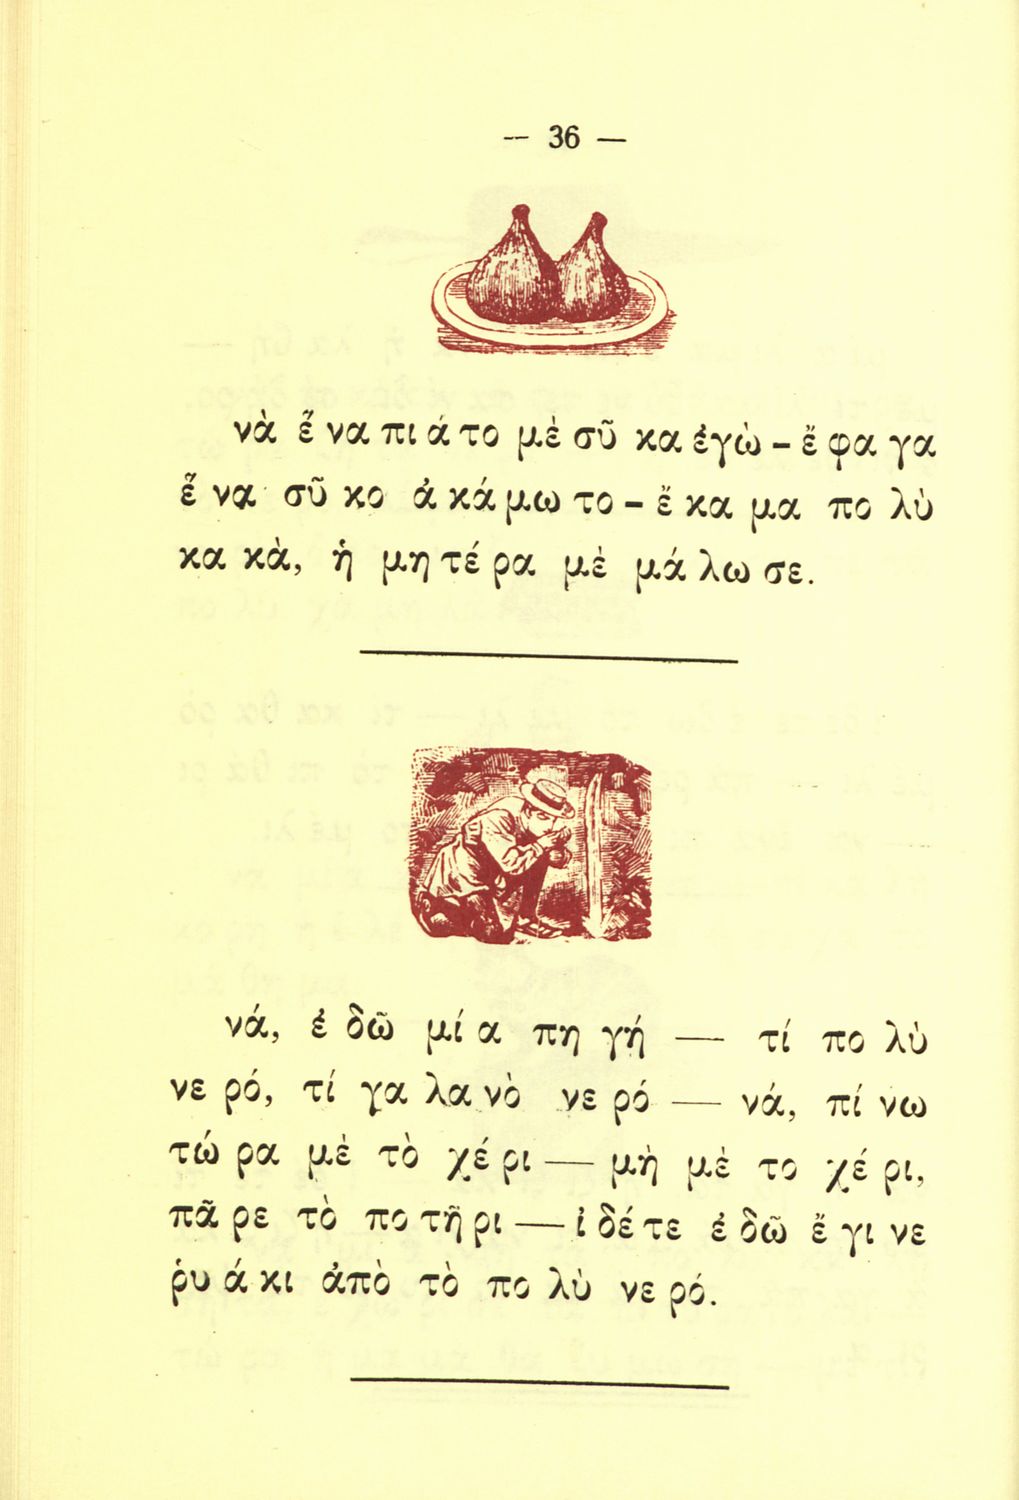 — 36 —
νὰ ἕ να πι ά το μὲ σῦ κα ἐγὼ - ἔ φα γα
ἕ να σῦ κο ἀ κά μω το - ἔ κα μα πο λὺ
κα κὰ, ἡ μη τέ ρα μὲ μά λω σε.
νά, ἐ δῶ μί α πη γή — τί πο λὺ
νε ρό, τί γα λα νὸ νε ρό — νά, πί νω
τώ ρα μὲ τὸ χέ ρι — μὴ μὲ το χέ ρι,
πᾶ ρε τὸ πο τῆ ρι — ἰ δέ τε ἐ δῶ ἔ γι νε
ῥυ ά κι ἀπὸ τὸ πο λὺ νε ρό.